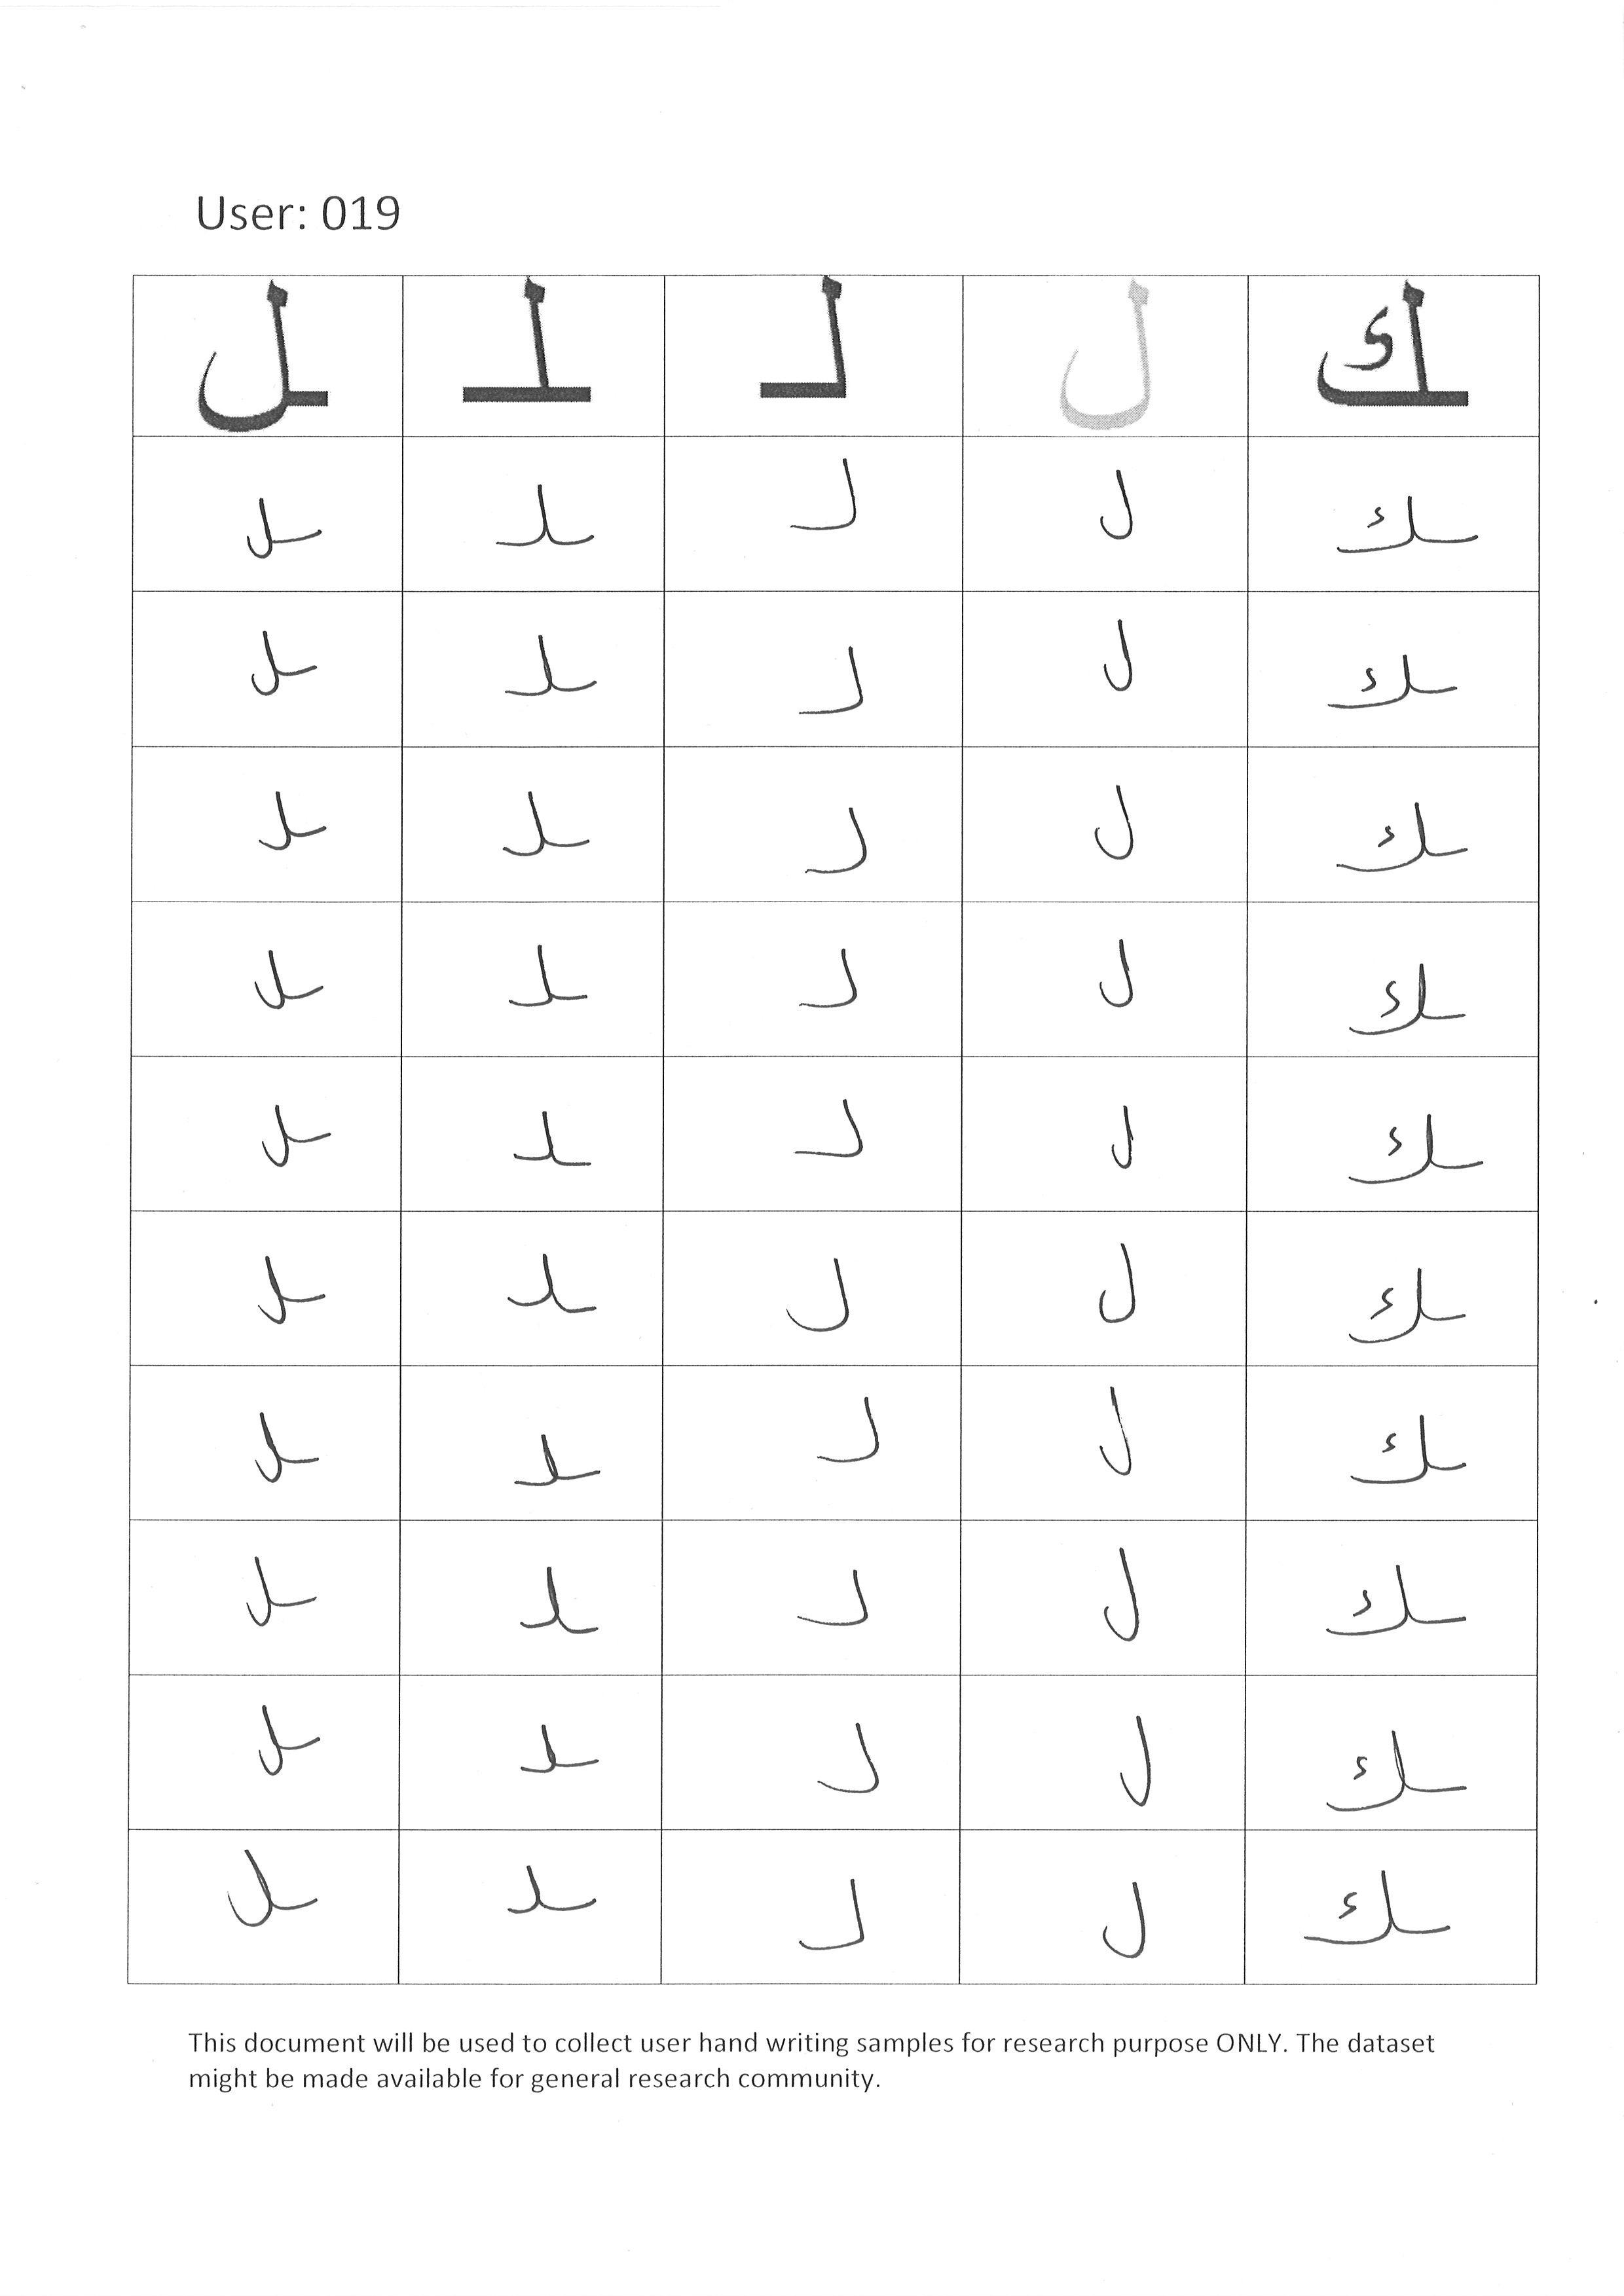 User: 019
ـك ل لـ ـلـ ـل
ـك ل لـ ـلـ ـل
ـك ل لـ ـلـ ـل
ـك ل لـ ـلـ ـل
ـك ل لـ ـلـ ـل
ـك ل لـ ـلـ ـل
ـك ل لـ ـلـ ـل
ـك ل لـ ـلـ ـل
ـك ل لـ ـلـ ـل
ـك ل لـ ـلـ ـل
ـك ل لـ ـلـ ـل
This document will be used to collect user hand writing samples for research purpose ONLY. The dataset
might be made available for general research community.